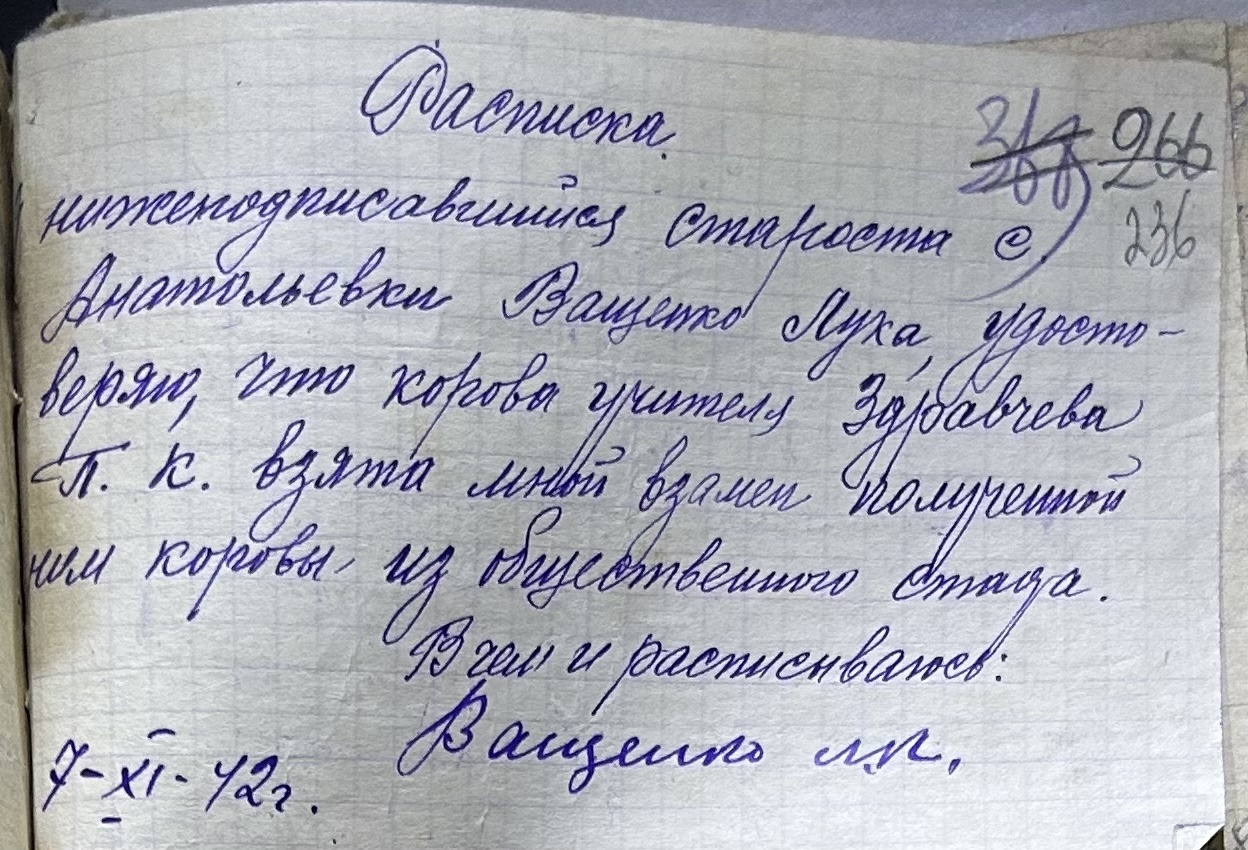 Расписка.
266
236
нижеподписавшийся староста с.
Анатольевки Ващенко Лука, удосто-
веряю, что корова учителя Здравчева
П. К. взята мной взамен полученной
им коровы из общественного стада.
В чем и расписываюсь:
Ващенко Л.К.
7-XI-42г.